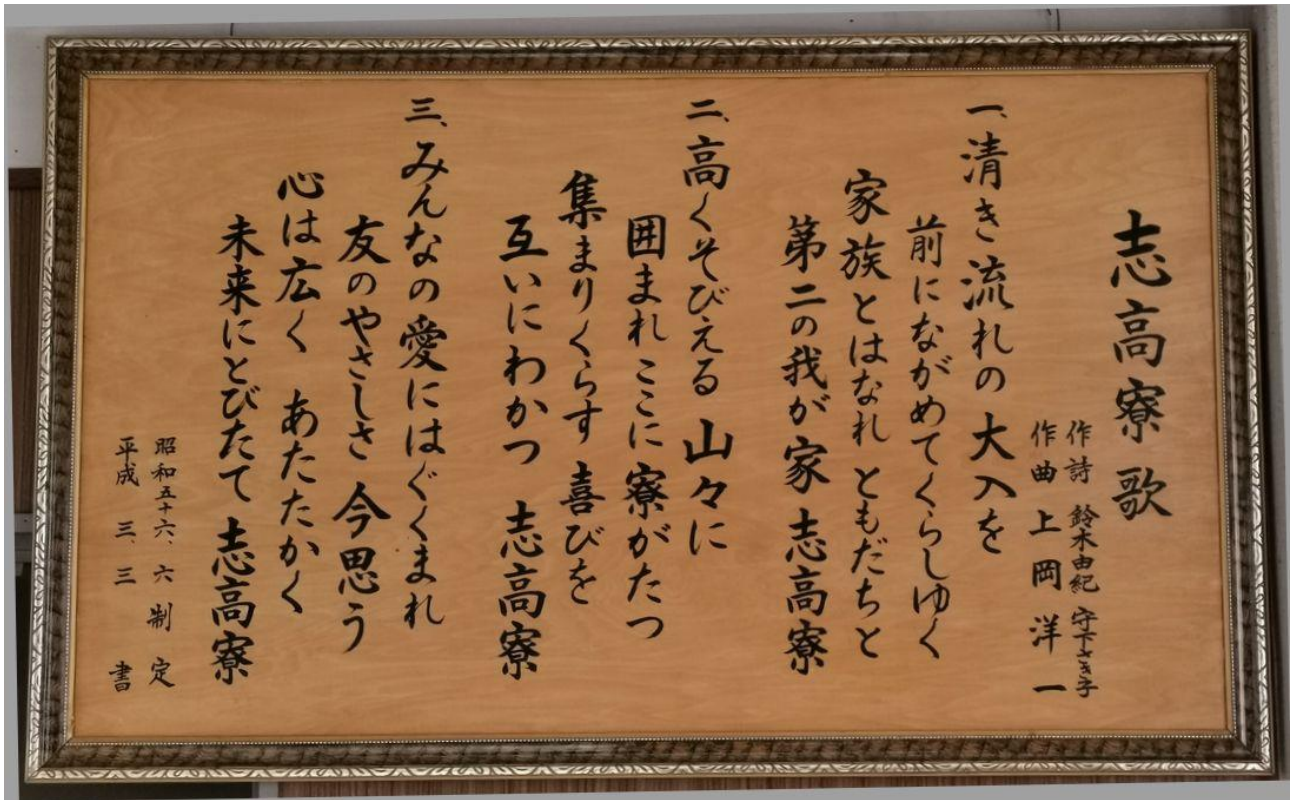 志高寮歌
作詩 鈴木由紀 守下さき子
作曲 上岡洋一
一、清き流れの大入を
前にながめてくらしゆく
家族とはなれ ともだちと
第二の我が家 志高寮
二、高くそびえる 山々に
囲まれここに寮がたつ
集まりくらす 喜びを
互いにわかつ 志高寮
三、みんなの愛にはぐくまれ
友のやさしさ 今思う
心は広く あたたかく
未来にとびたて 志高寮
昭和五十六、六 制定
平成 三、三 書